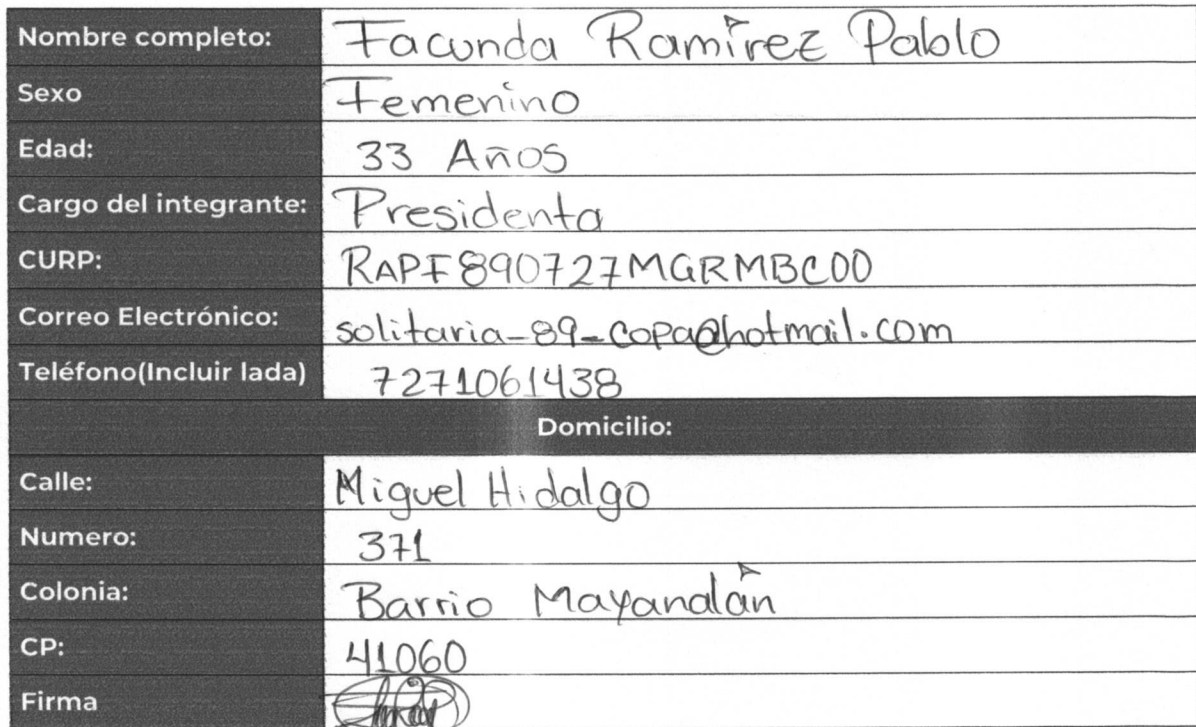 Nombre completo: Facunda Ramírez Pablo
Sexo Femenino
Edad: 33 Años
Cargo del integrante: Presidenta
CURP: RAPF890727MGRMBC00
Correo Electrónico: solitaria-89-copa@hotmail.com
Teléfono(Incluir lada) 7271061438
Domicilio:
Calle: Miguel Hidalgo
Numero: 371
Colonia: Barrio Mayanalán
CP: 41060
Firma